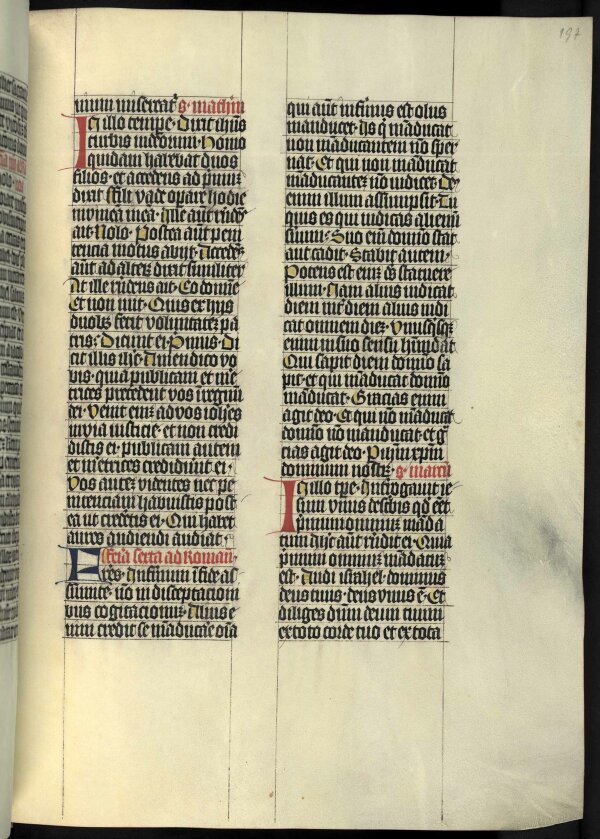 197
s. mathm
In illo tempe. Dixit ihus
turbis iudeorum. Homo
quidam habebat duos
filios. et accedens ad pmū
dixit. Fili vade opare hodie
in vinea mea. Ille aūt rūdēs
ait. Nolo. Postea aūt peni
tencia motus abijt. Accedēs
aūt ad alterz dixit similiter
At ille rūdens ait. Eo domīe
Et non iuit. Quis ex hijs
duobz fecit voluntatez pa
tris. Dicunt ei. Primus. Di
cit illis ihs. Amen dico vo
bis. quia publicani et me
retrices precedent vos i regnū
dei. Venit eniz ad vos iohēs
in via iusticie. et non credi
distis ei. publicani autem
et metrices crediderunt ei.
Vos autez videntes nec pe
nitenciam habuistis post
ea ut crederetis ei. Qui habet
aures audiendi audiat.
Feria sexta ad Roman.
Fratres. Infirmum ī fide as
sumite. nō in disceptacioni
bus cogitacionuz. Alius e
nim credit se māducāe oīa
qui aūt infirmus est. olus
manducet. Hs qi māducat
non māducantem nō sper
nat. Et qui non māducat
māducantez nō iudicet. De
enim illum assumpsit. Tu
quis es qui iudicas alienū
suum. Suo eni domīo stat
aut cadit. Stabit autem.
Potens est eniz ds statuere
illum. Nam alius iudicat
diem int diem. alius iudi
cat omnem diez. Vnusqsqz
enim in suo sensu habūdat
Qui sapit diem domīo sa
pit. et qui māducat domīo
māducat. Gracias enim
agit deo. Et qui nō māducat
domīo nō manducat. et gr
cias agit deo. P ihm xpm
dominum nostrz. s. marcū
In illo tpe. Intrrogauit ie
sum vnus de scbis qd eēt
pmum omniuz māda
tum. Ihc aūt rūdit ei. Quia
primum omniuz mādatuz
est. Audi israhel. dominus
deus tuus. deus vnus ē. Et
diliges dūm deum tuum
ex toto corde tuo et ex tota